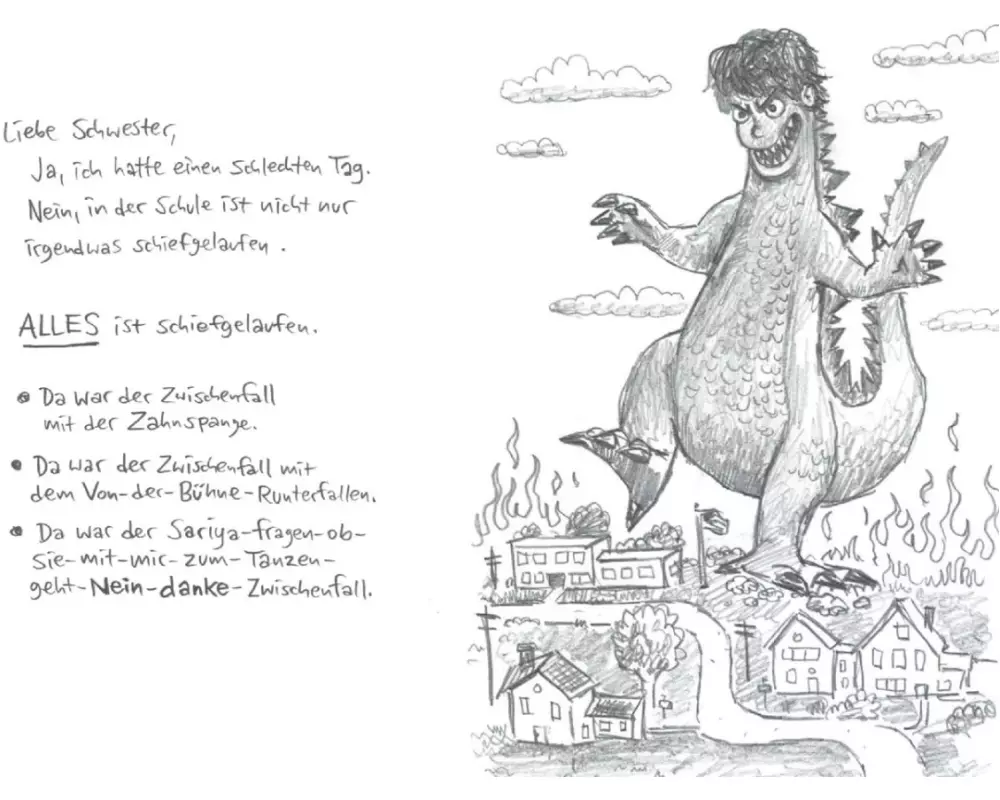 Liebe Schwester,
Ja, ich hatte einen schlechten Tag.
Nein, in der Schule ist nicht nur
irgendwas schiefgelaufen.
ALLES ist schiefgelaufen.
• Da war der Zwischenfall
mit der Zahnspange.
• Da war der Zwischenfall mit
dem Von-der-Bühne-Runterfallen.
• Da war der Sariya-fragen-ob-
sie-mit-mir-zum-Tanzen-
geht-Nein-danke-Zwischenfall.